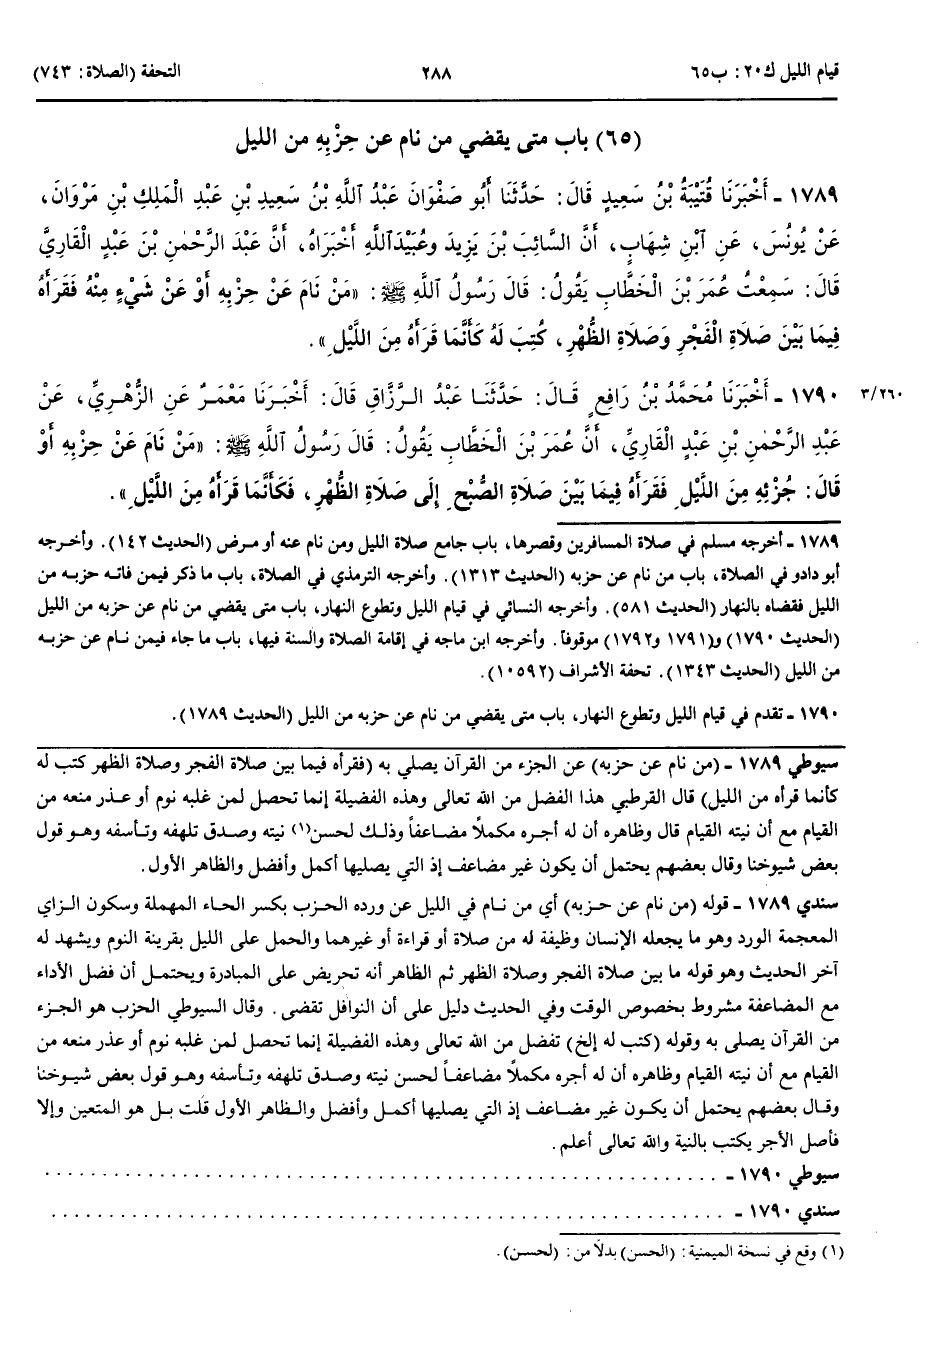 قيام الليل ك٢٠: ب٦٥
٢٨٨
التحفة (الصلاة: ٧٤٣)
(٦٥) باب متى يقضي من نام عن حِزْبِهِ من الليل
١٧٨٩ - أَخْبَرَنَا قُتَيْبَةُ بْنُ سَعِيدٍ قَالَ: حَدَّثَنَا أَبُو صَفْوَانَ عَبْدُ اللَّهِ بْنُ سَعِيدِ بْنِ عَبْدِ الْمَلِكِ بْنِ مَرْوَانَ،
عَنْ يُونُسَ، عَنِ ابْنِ شِهَابٍ، أَنَّ السَّائِبَ بْنَ يَزِيدَ وعُبَيْدَاللَّهِ أَخْبَرَاهُ، أَنَّ عَبْدَ الرَّحْمٰنِ بْنَ عَبْدٍ الْقَارِيَّ
قَالَ: سَمِعْتُ عُمَرَ بْنَ الْخَطَّابِ يَقُولُ: قَالَ رَسُولُ اللَّهِ ﷺ: «مَنْ نَامَ عَنْ حِزْبِهِ أَوْ عَنْ شَيْءٍ مِنْهُ فَقَرَأَهُ
فِيمَا بَيْنَ صَلَاةِ الْفَجْرِ وَصَلَاةِ الظُّهْرِ، كُتِبَ لَهُ كَأَنَّمَا قَرَأَهُ مِنَ اللَّيْلِ».
١٧٩٠ - أَخْبَرَنَا مُحَمَّدُ بْنُ رَافِعٍ قَالَ: حَدَّثَنَا عَبْدُ الرَّزَّاقِ قَالَ: أَخْبَرَنَا مَعْمَرٌ عَنِ الزُّهْرِيِّ، عَنْ
٣/٢٦٠
عَبْدِ الرَّحْمٰنِ بْنِ عَبْدٍ الْقَارِيِّ، أَنَّ عُمَرَ بْنَ الْخَطَّابِ يَقُولُ: قَالَ رَسُولُ اللَّهِ ﷺ: «مَنْ نَامَ عَنْ حِزْبِهِ أَوْ
قَالَ: جُزْئِهِ مِنَ اللَّيْلِ فَقَرَأَهُ فِيمَا بَيْنَ صَلَاةِ الصُّبْحِ إِلَى صَلَاةِ الظُّهْرِ، فَكَأَنَّمَا قَرَأَهُ مِنَ اللَّيْلِ».
١٧٨٩ - أخرجه مسلم في صلاة المسافرين وقصرها، باب جامع صلاة الليل ومن نام عنه أو مرض (الحديث ١٤٢). وأخرجه
أبو دادو في الصلاة، باب من نام عن حزبه (الحديث ١٣١٣). وأخرجه الترمذي في الصلاة، باب ما ذكر فيمن فاته حزبه من
الليل فقضاه بالنهار (الحديث ٥٨١). وأخرجه النسائي في قيام الليل وتطوع النهار، باب متى يقضي من نام عن حزبه من الليل
(الحديث ١٧٩٠) و(١٧٩١ و١٧٩٢) موقوفاً. وأخرجه ابن ماجه في إقامة الصلاة والسنة فيها، باب ما جاء فيمن نام عن حزبه
من الليل (الحديث ١٣٤٣). تحفة الأشراف (١٠٥٩٢).
١٧٩٠ - تقدم في قيام الليل وتطوع النهار، باب متى يقضي من نام عن حزبه من الليل (الحديث ١٧٨٩).
سيوطي ١٧٨٩ - (من نام عن حزبه) عن الجزء من القرآن يصلي به (فقرأه فيما بين صلاة الفجر وصلاة الظهر كتب له
كأنما قرأه من الليل) قال القرطبي هذا الفضل من الله تعالى وهذه الفضيلة إنما تحصل لمن غلبه نوم أو عذر منعه من
القيام مع أن نيته القيام قال وظاهره أن له أجره مكملاً مضاعفاً وذلك لحسن(١) نيته وصدق تلهفه وتأسفه وهو قول
بعض شيوخنا وقال بعضهم يحتمل أن يكون غير مضاعف إذ التي يصليها أكمل وأفضل والظاهر الأول.
سندي ١٧٨٩ - قوله (من نام عن حزبه) أي من نام في الليل عن ورده الحزب بكسر الحاء المهملة وسكون الزاي
المعجمة الورد وهو ما يجعله الإنسان وظيفة له من صلاة أو قراءة أو غيرهما والحمل على الليل بقرينة النوم ويشهد له
آخر الحديث وهو قوله ما بين صلاة الفجر وصلاة الظهر ثم الظاهر أنه تحريض على المبادرة ويحتمل أن فضل الأداء
مع المضاعفة مشروط بخصوص الوقت وفي الحديث دليل على أن النوافل تقضى. وقال السيوطي الحزب هو الجزء
من القرآن يصلى به وقوله (كتب له إلخ) تفضل من الله تعالى وهذه الفضيلة إنما تحصل لمن غلبه نوم أو عذر منعه من
القيام مع أن نيته القيام وظاهره أن له أجره مكملاً مضاعفاً لحسن نيته وصدق تلهفه وتأسفه وهو قول بعض شيوخنا
وقال بعضهم يحتمل أن يكون غير مضاعف إذ التي يصليها أكمل وأفضل والظاهر الأول قلت بل هو المتعين وإلا
فأصل الأجر يكتب بالنية والله تعالى أعلم.
سيوطي ١٧٩٠ - . . . . . . . . . . . . . . . . . . . . . . . . . . . . . .
سندي ١٧٩٠ - . . . . . . . . . . . . . . . . . . . . . . . . . . . . . .
(١) وقع في نسخة الميمنية: (الحسن) بدلاً من: (لحسن).